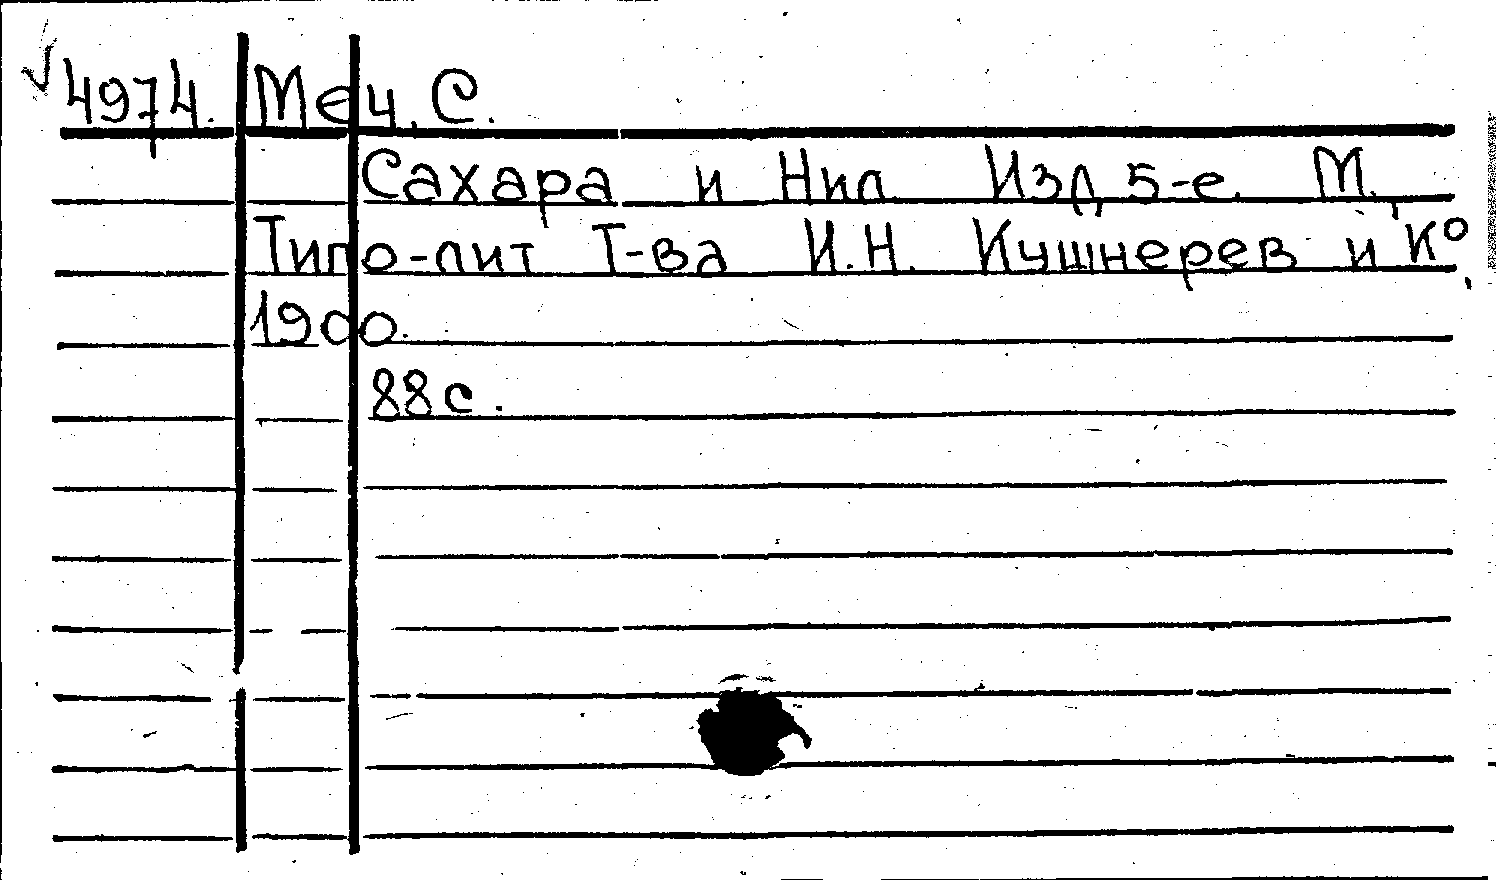 4974. Меч, С.
Сахара и Нил. Изд. 5-е. М.,
Типо-лит Т-ва И.Н. Кушнерев и К°,
1900.
88 с.